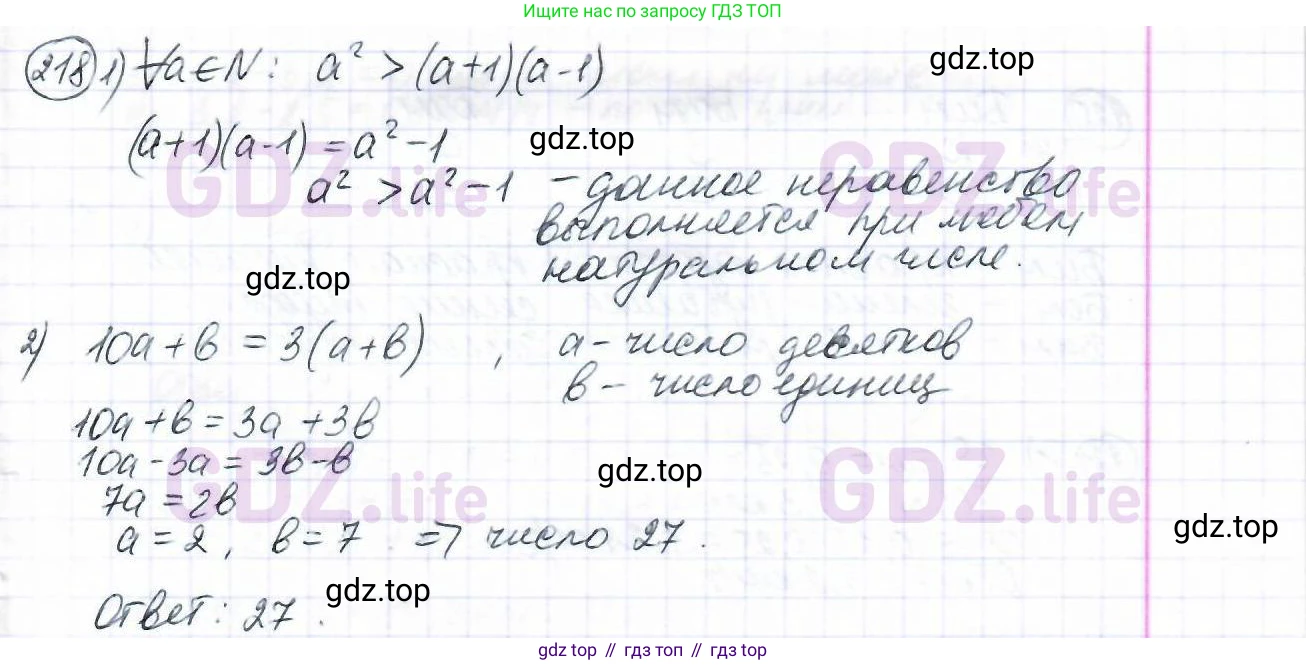 Ищите нас по запросу ГДЗ ТОП
218 1) ∀a ∈ N: a² > (a+1)(a-1)
gdz.top
(a+1)(a-1) = a² - 1
gdz.top
GDZ.life
GDZ.life
a² > a² - 1 - данное неравенство
выполняется при любом
натуральном числе.
gdz.top
2) 10a + b = 3(a+b), a - число десятков
b - число единиц
10a + b = 3a + 3b
10a - 3a = 3b - b
gdz.top
GDZ.life
GDZ.life
7a = 2b
a = 2, b = 7 => число 27.
gdz.top
gdz.top
Ответ: 27.
gdz.top // гдз.топ // гдз top